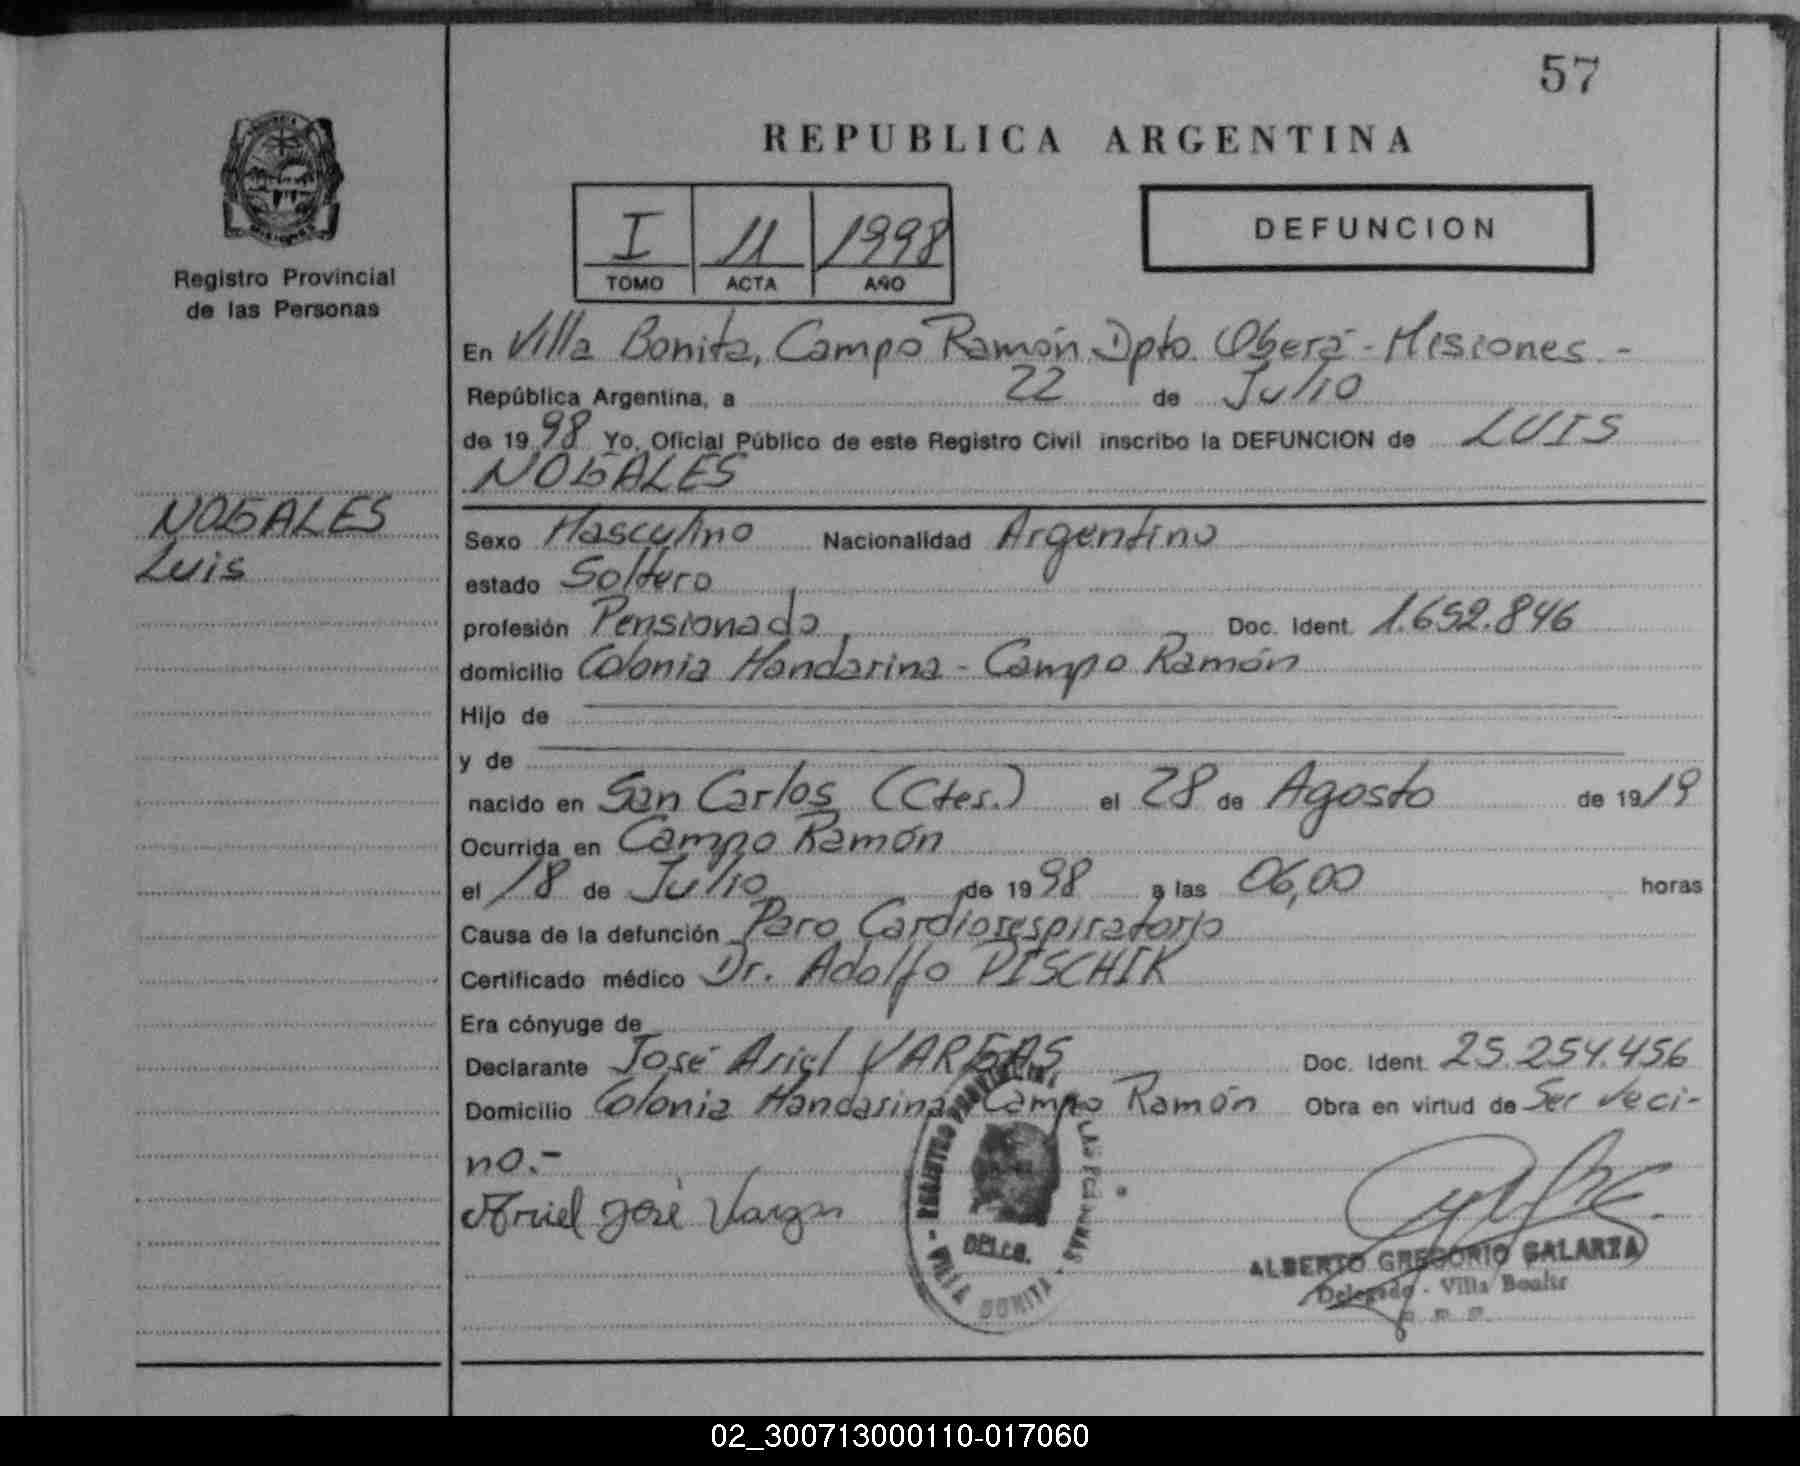 57
REPUBLICA ARGENTINA
I 11 1998
TOMO ACTA AÑO
DEFUNCION
Registro Provincial
de las Personas
NOGALES
Luis
En Villa Bonita, Campo Ramón Dpto. Oberá - Misiones.-
República Argentina, a 22 de Julio
de 1998 Yo, Oficial Público de este Registro Civil inscribo la DEFUNCION de LUIS
NOGALES
Sexo Masculino Nacionalidad Argentino
estado Soltero
profesión Pensionado Doc. Ident. 1.652.846
domicilio Colonia Mandarina - Campo Ramón
Hijo de
y de
nacido en San Carlos (Ctes.) el 28 de Agosto de 1919
Ocurrida en Campo Ramón
el 18 de Julio de 1998 a las 06,00 horas
Causa de la defunción Paro Cardiorespiratorio
Certificado médico Dr. Adolfo PISCHIK
Era cónyuge de
Declarante José Ariel VARGAS Doc. Ident. 25.254.456
Domicilio Colonia Mandarina, Campo Ramón Obra en virtud de Ser Veci-
no.-
Ariel José Vargas
VILLA BONITA
ALBERTO GREGORIO GALARZA
Delegado - Villa Bonita
02_300713000110-017060